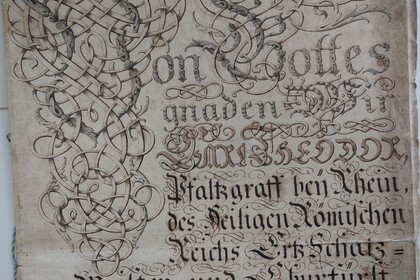 Von Gottes
gnaden Wir
CARL THEODOR,
Pfaltzgraff beÿ Rhein,
des Heiligen Römischen
Reichs Ertz Schatz=
Churfürst